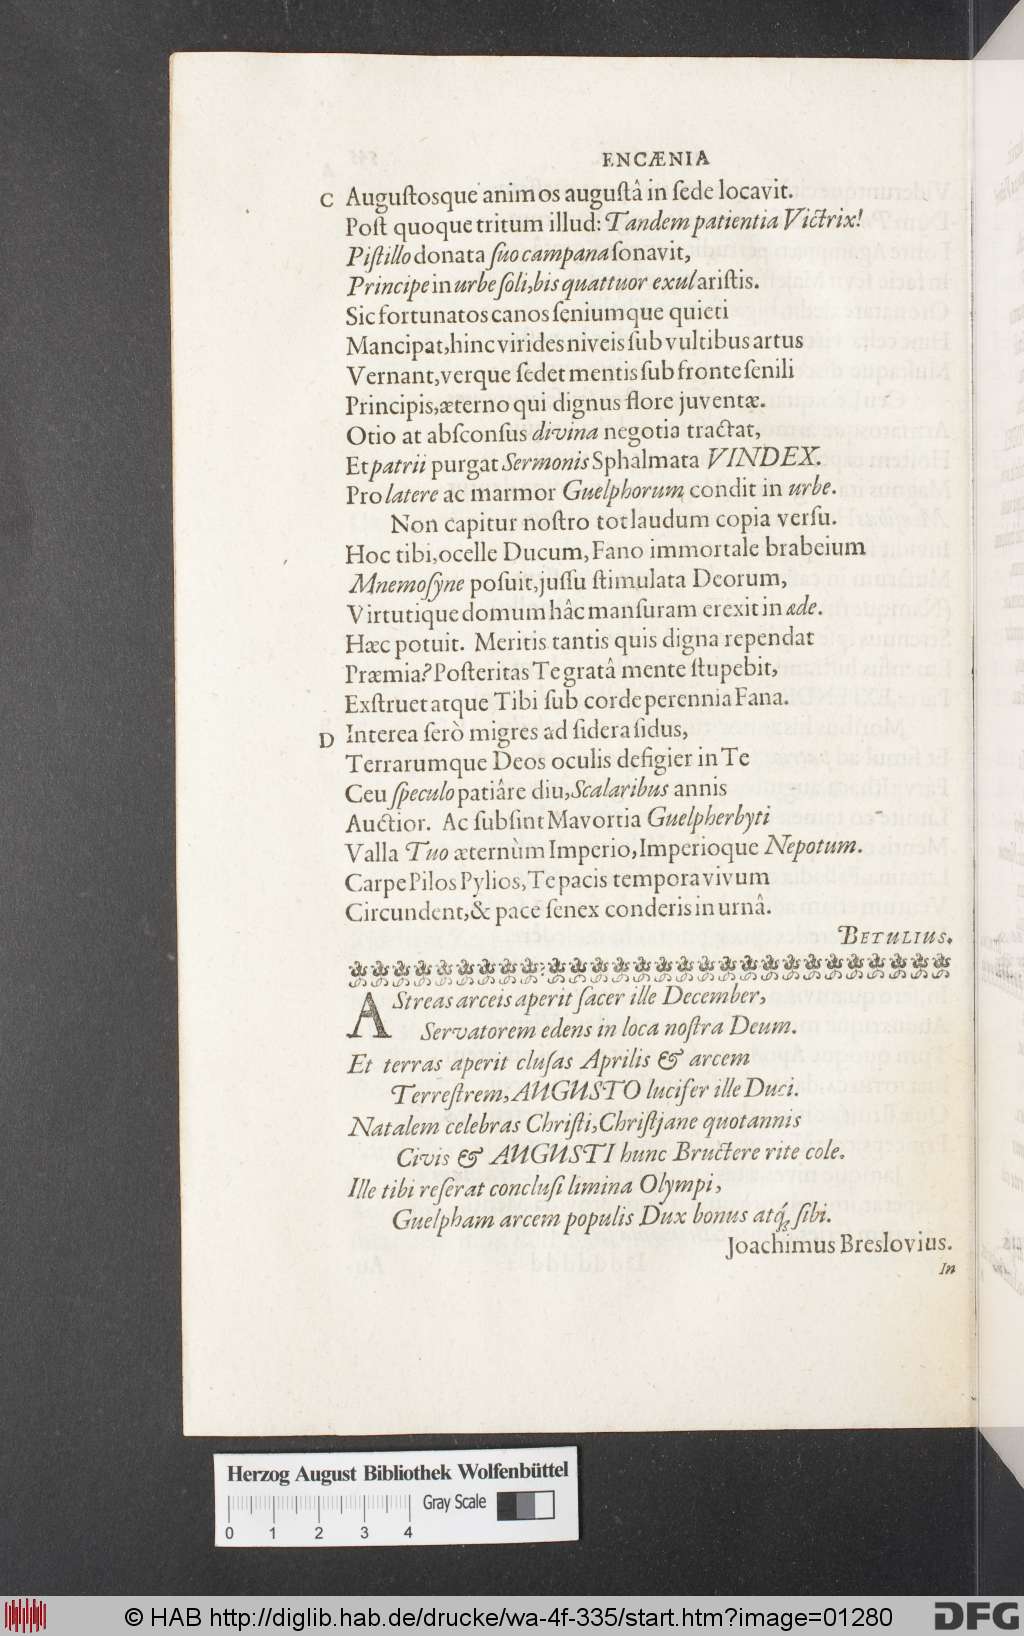 ENCÆNIA
C Auguſtosque animos auguſtâ in ſede locavit.
Poſt quoque tritum illud: Tandem patientia Victrix!
Piſtillo donata ſuo campana ſonavit,
Principe in urbe ſoli, bis quattuor exul ariſtis.
Sic fortunatos canos ſeniumque quieti
Mancipat, hinc virides niveis ſub vultibus artus
Vernant, verque ſedet mentis ſub fronte ſenili
Principis, æterno qui dignus flore juventæ.
Otio at abſconſus divina negotia tractat,
Et patrii purgat Sermonis Sphalmata VINDEX.
Pro latere ac marmor Guelphorum condit in urbe.
Non capitur noſtro tot laudum copia verſu.
Hoc tibi, ocelle Ducum, Fano immortale brabeium
Mnemoſyne poſuit, juſſu ſtimulata Deorum,
Virtutique domum hâc manſuram erexit in æde.
Hæc potuit. Meritis tantis quis digna rependat
Præmia? Poſteritas Te gratâ mente ſtupebit,
Exſtruet atque Tibi ſub corde perennia Fana.
D Interea ſerò migres ad ſidera ſidus,
Terrarumque Deos oculis defigier in Te
Ceu ſpeculo patiâre diu, Scalaribus annis
Auctior. Ac ſubſint Mavortia Guelpherbyti
Valla Tuo æternùm Imperio, Imperioque Nepotum.
Carpe Pilos Pylios, Te pacis tempora vivum
Circundent, & pace ſenex conderis in urnâ.
BETULIUS.
AStreas arceis aperit ſacer ille December,
Servatorem edens in loca noſtra Deum.
Et terras aperit cluſas Aprilis & arcem
Terreſtrem, AUGUSTO lucifer ille Duci.
Natalem celebras Chriſti, Chriſtjane quotannis
Civis & AUGUSTI hunc Bructere rite cole.
Ille tibi reſerat concluſi limina Olympi,
Guelpham arcem populis Dux bonus atq́ꝫ ſibi.
Joachimus Breslovius.
In
Herzog August Bibliothek Wolfenbüttel
Gray Scale
0 1 2 3 4
© HAB http://diglib.hab.de/drucke/wa-4f-335/start.htm?image=01280
DFG